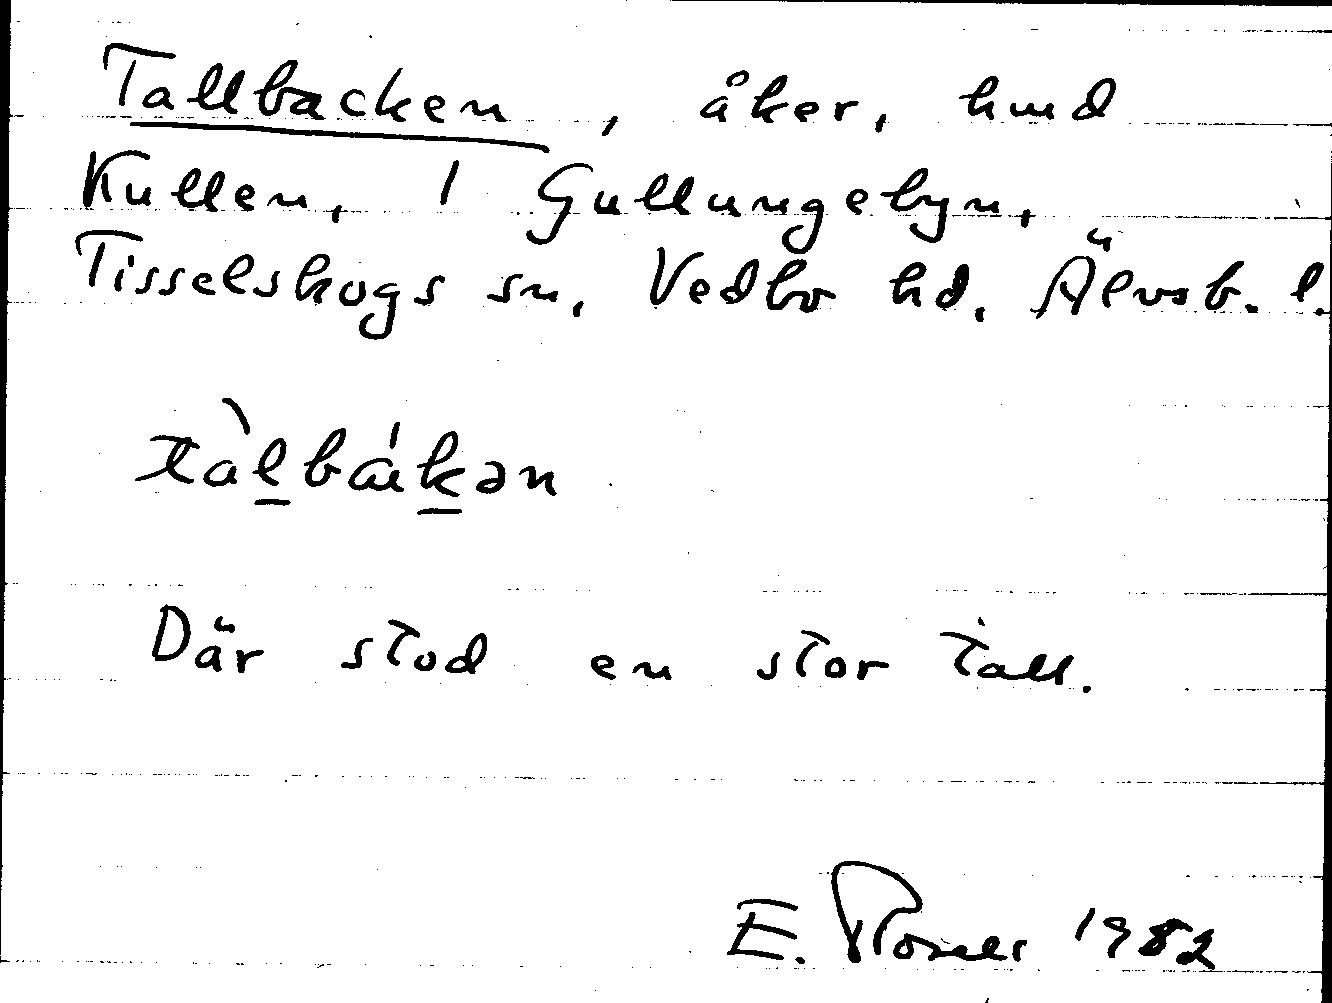 Tallbacken, åker, hmd
Kullen, 1 Gullungebyn,
Tisselskogs sn, Vedbo hd. Älvsb. l.
tàl̲bák̲ən
Där stod en stor tall.
E. 1982